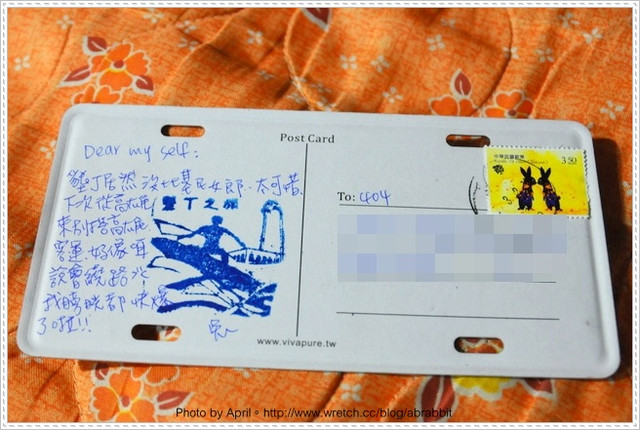 Post Card
Dear my self:
墾丁居然沒比基尼女郎.太可惜.
下次從高雄
墾丁之旅
來別搭高雄
客運 好像
會繞路
我膀胱都快爆
了啦!!
To: 404
中華民國郵票
3.50
www.vivapure.tw
Photo by April。http://www.wretch.cc/blog/abrabbit